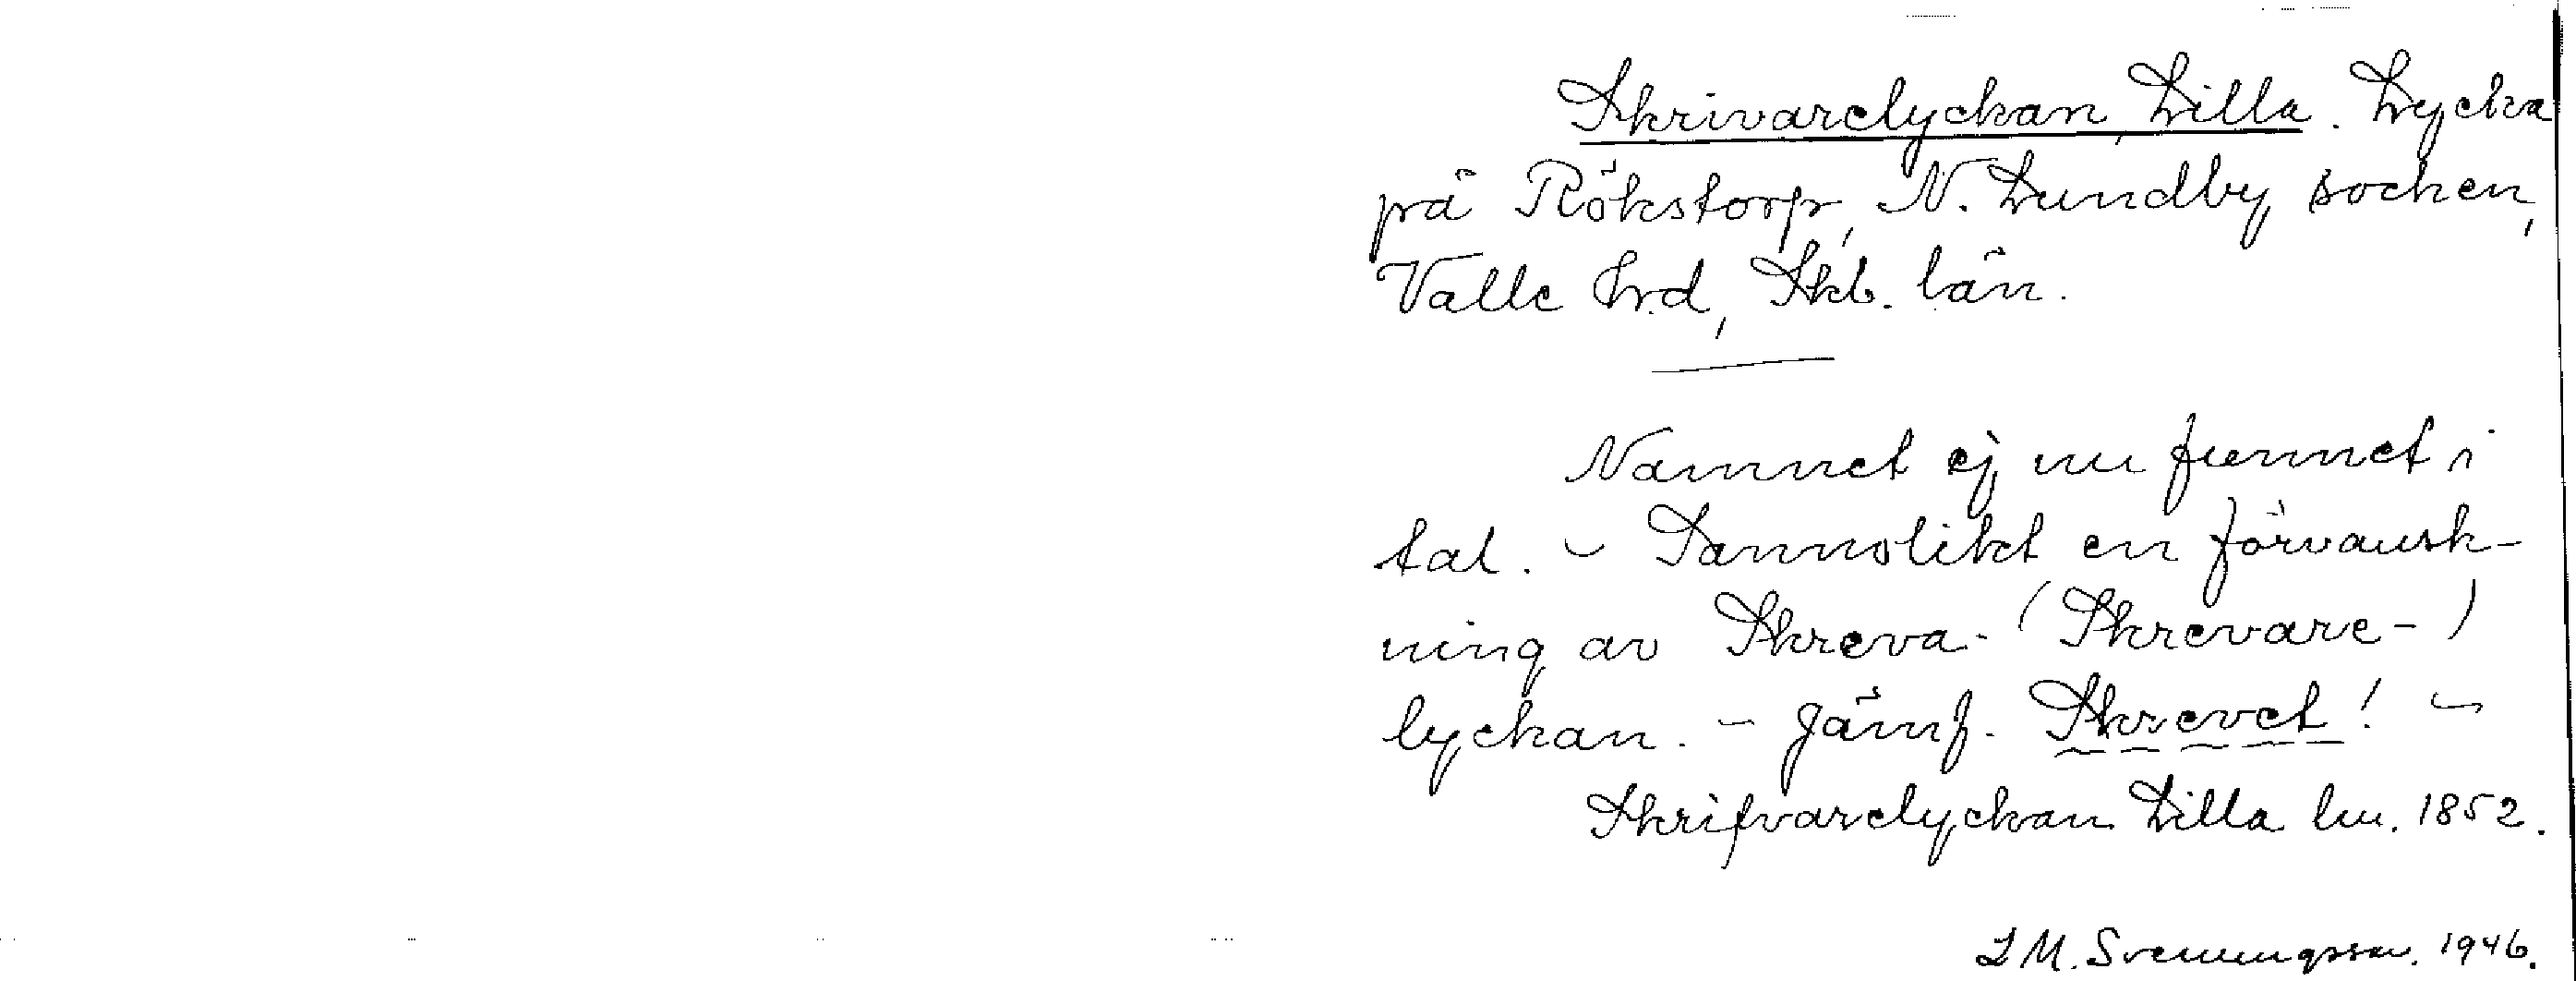 Skrivarelyckan, Lilla. Lycka
på Rökstorp, N. Lundby socken,
Valle hd, Skb. län.
Namnet ej nu funnet i
tal. - Sannolikt en förvansk-
ning av Skreva- (Skrevare-)
lyckan. - Jämf. Skrevet! -
Skrifvarelyckan Lilla lm. 1852.
I M. Svenungsson. 1946.